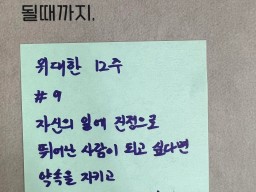 될때까지.
위대한 12주
# 9
자신의 일에 진정으로
뛰어난 사람이 되고 싶다면
약속을 지키고